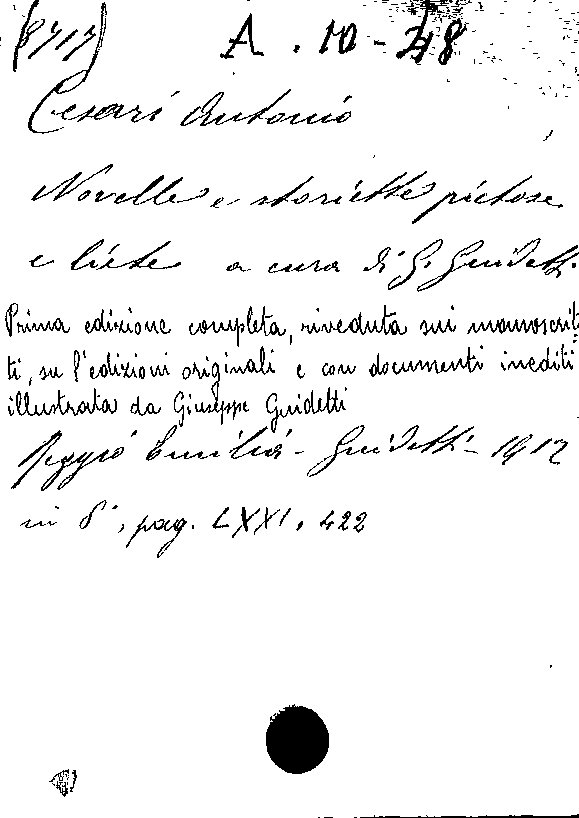 (8717) A. 10 - 48
Cesari Antonio
Novelle e storiette pietose
e liete a cura di G. Guidetti
Prima edizione completa, riveduta sui manoscrit=
ti, su l'edizioni originali e con documenti inediti
illustrata da Giuseppe Guidetti
Reggio Emilia - Guidetti - 1912
in 8°, pag. LXXI, 422